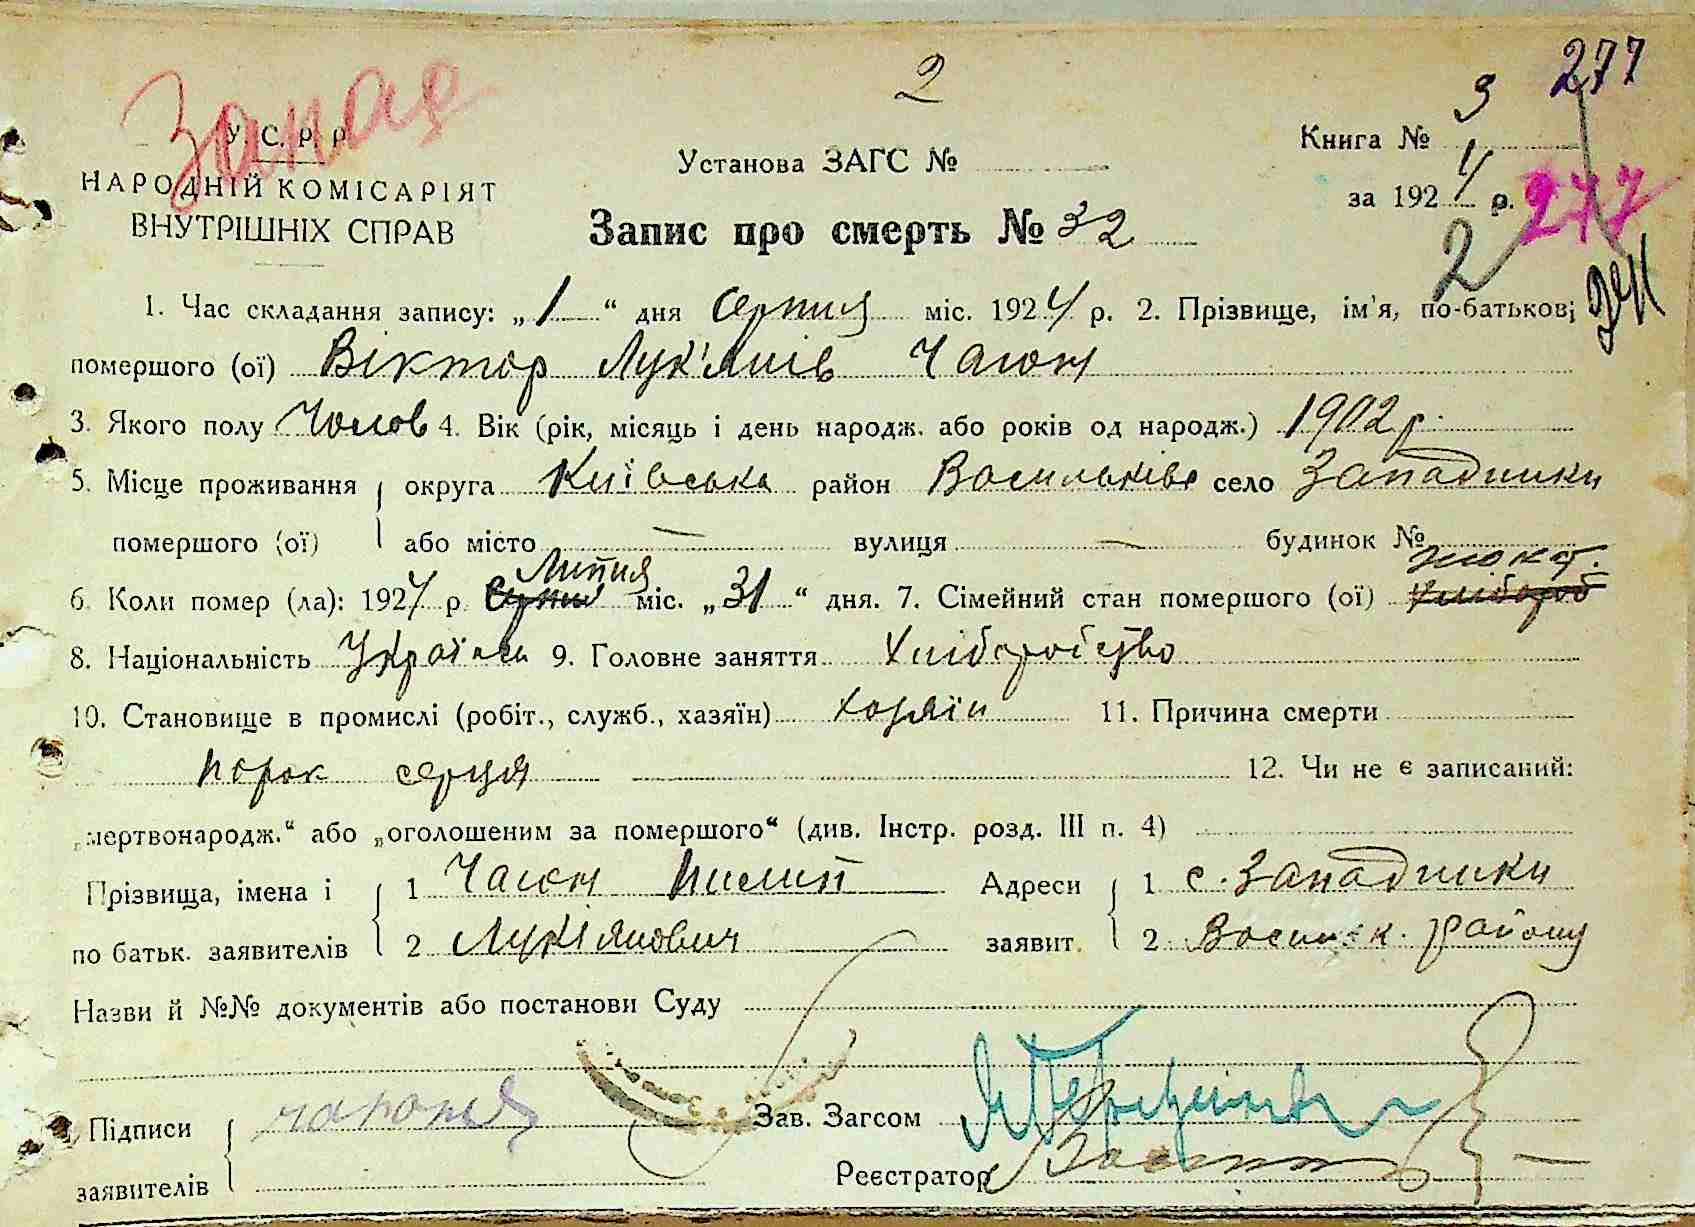 2
277
Книга № 3
У. С. Р. Р.
Установа ЗАГС №
за 1924 р. 277
НАРОДНІЙ КОМІСАРІЯТ
ВНУТРІШНІХ СПРАВ
Запис про смерть № 32
2
1. Час складання запису: „1“ дня Серпня міс. 1924 р. 2. Прізвище, ім'я, по-батькові
помершого (ої) Віктор Лук'янів Чаюн
3. Якого полу Чолов 4. Вік (рік, місяць і день народж. або років од народж.) 1902 р.
5. Місце проживання округа Київська район Васильків село Западинки
помершого (ої) або місто — вулиця — будинок №
6. Коли помер (ла): 1924 р. Серпня Липня міс. „31“ дня. 7. Сімейний стан помершого (ої) Хлібороб
8. Національність 9. Головне заняття Хліборобство
10. Становище в промислі (робіт., служб., хазяїн) хозяїн 11. Причина смерти
порок серця 12. Чи не є записаний:
„мертвонародж.“ або „оголошеним за помершого“ (див. Інстр. розд. III п. 4)
Прізвища, імена і 1 Чаюн Пилип Адреси 1 с. Западинки
по батьк. заявителів 2 Лукіянович заявит. 2 Васильк. району
Назви й №№ документів або постанови Суду
Підписи Зав. Загсом
заявителів Реєстратор